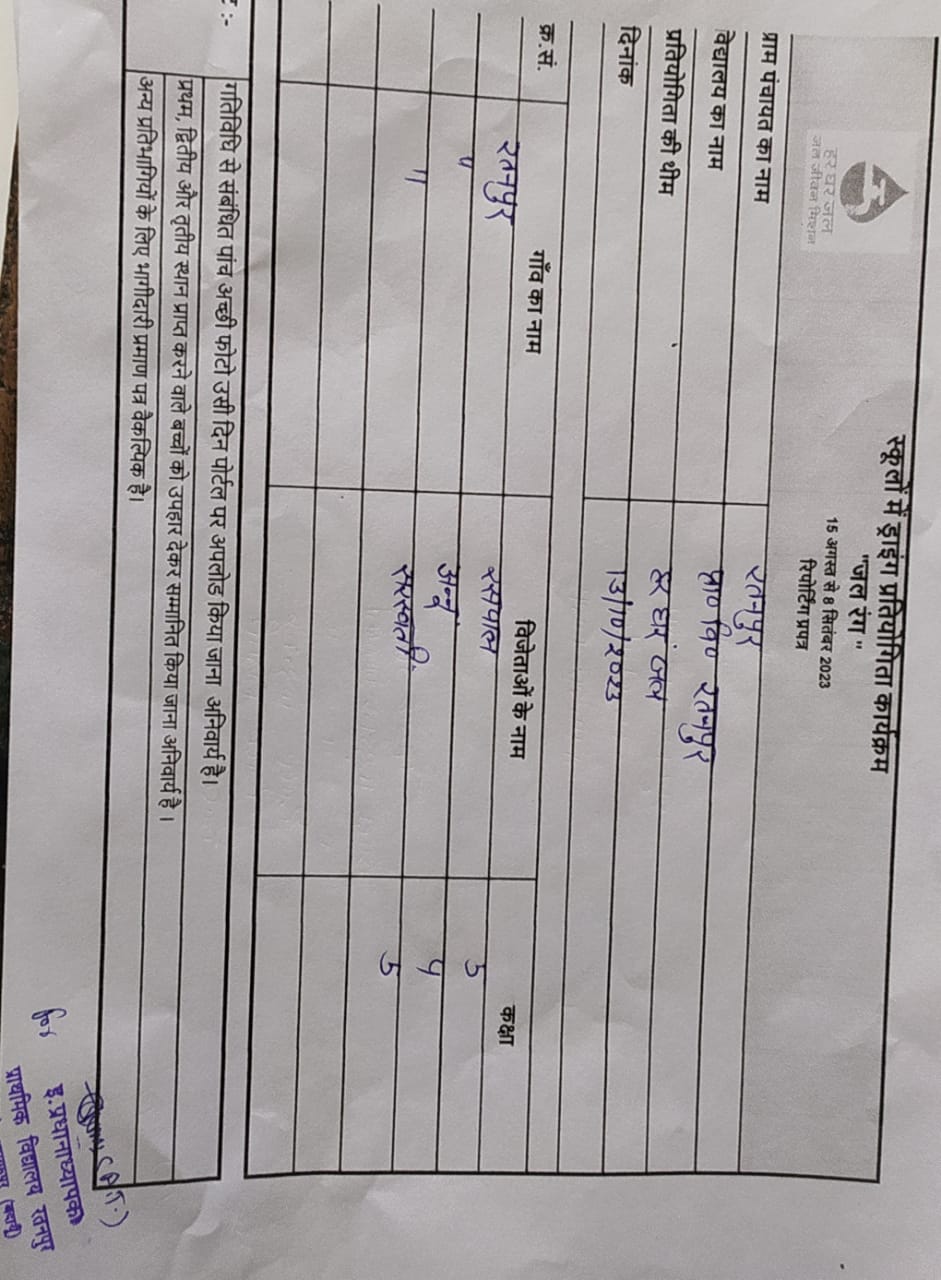 स्कूलों में ड्राइंग प्रतियोगिता कार्यक्रम
"जल रंग "
15 अगस्त से 8 सितंबर 2023
रिपोर्टिंग प्रपत्र
हर घर जल
जल जीवन मिशन
ग्राम पंचायत का नाम रतनपुर
विद्यालय का नाम प्रा० वि० रतनपुर
प्रतियोगिता की थीम हर घर जल
दिनांक
क्र.सं. गाँव का नाम विजेताओं के नाम कक्षा
रतनपुर 5
" 4
" सरस्वती 5
गतिविधि से संबंधित पांच अच्छी फोटो उसी दिन पोर्टल पर अपलोड किया जाना अनिवार्य है।
प्रथम, द्वितीय और तृतीय स्थान प्राप्त करने वाले बच्चों को उपहार देकर सम्मानित किया जाना अनिवार्य है।
अन्य प्रतिभागियों के लिए भागीदारी प्रमाण पत्र वैकल्पिक है।
for इ.प्रधानाध्यापक
प्राथमिक विद्यालय रतनपुर